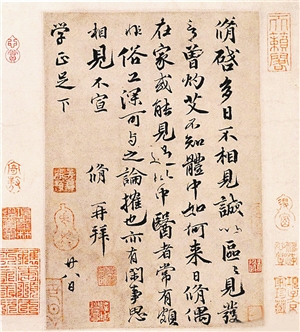 脩啓多日不相見誠以區〻見發
言曾灼艾不知體中如何来日脩偶
在家或能見過此中醫者常有頗
非俗工深可與之論搉也亦有閑事思
相見不宣 脩再拜
学正足下
廿八日